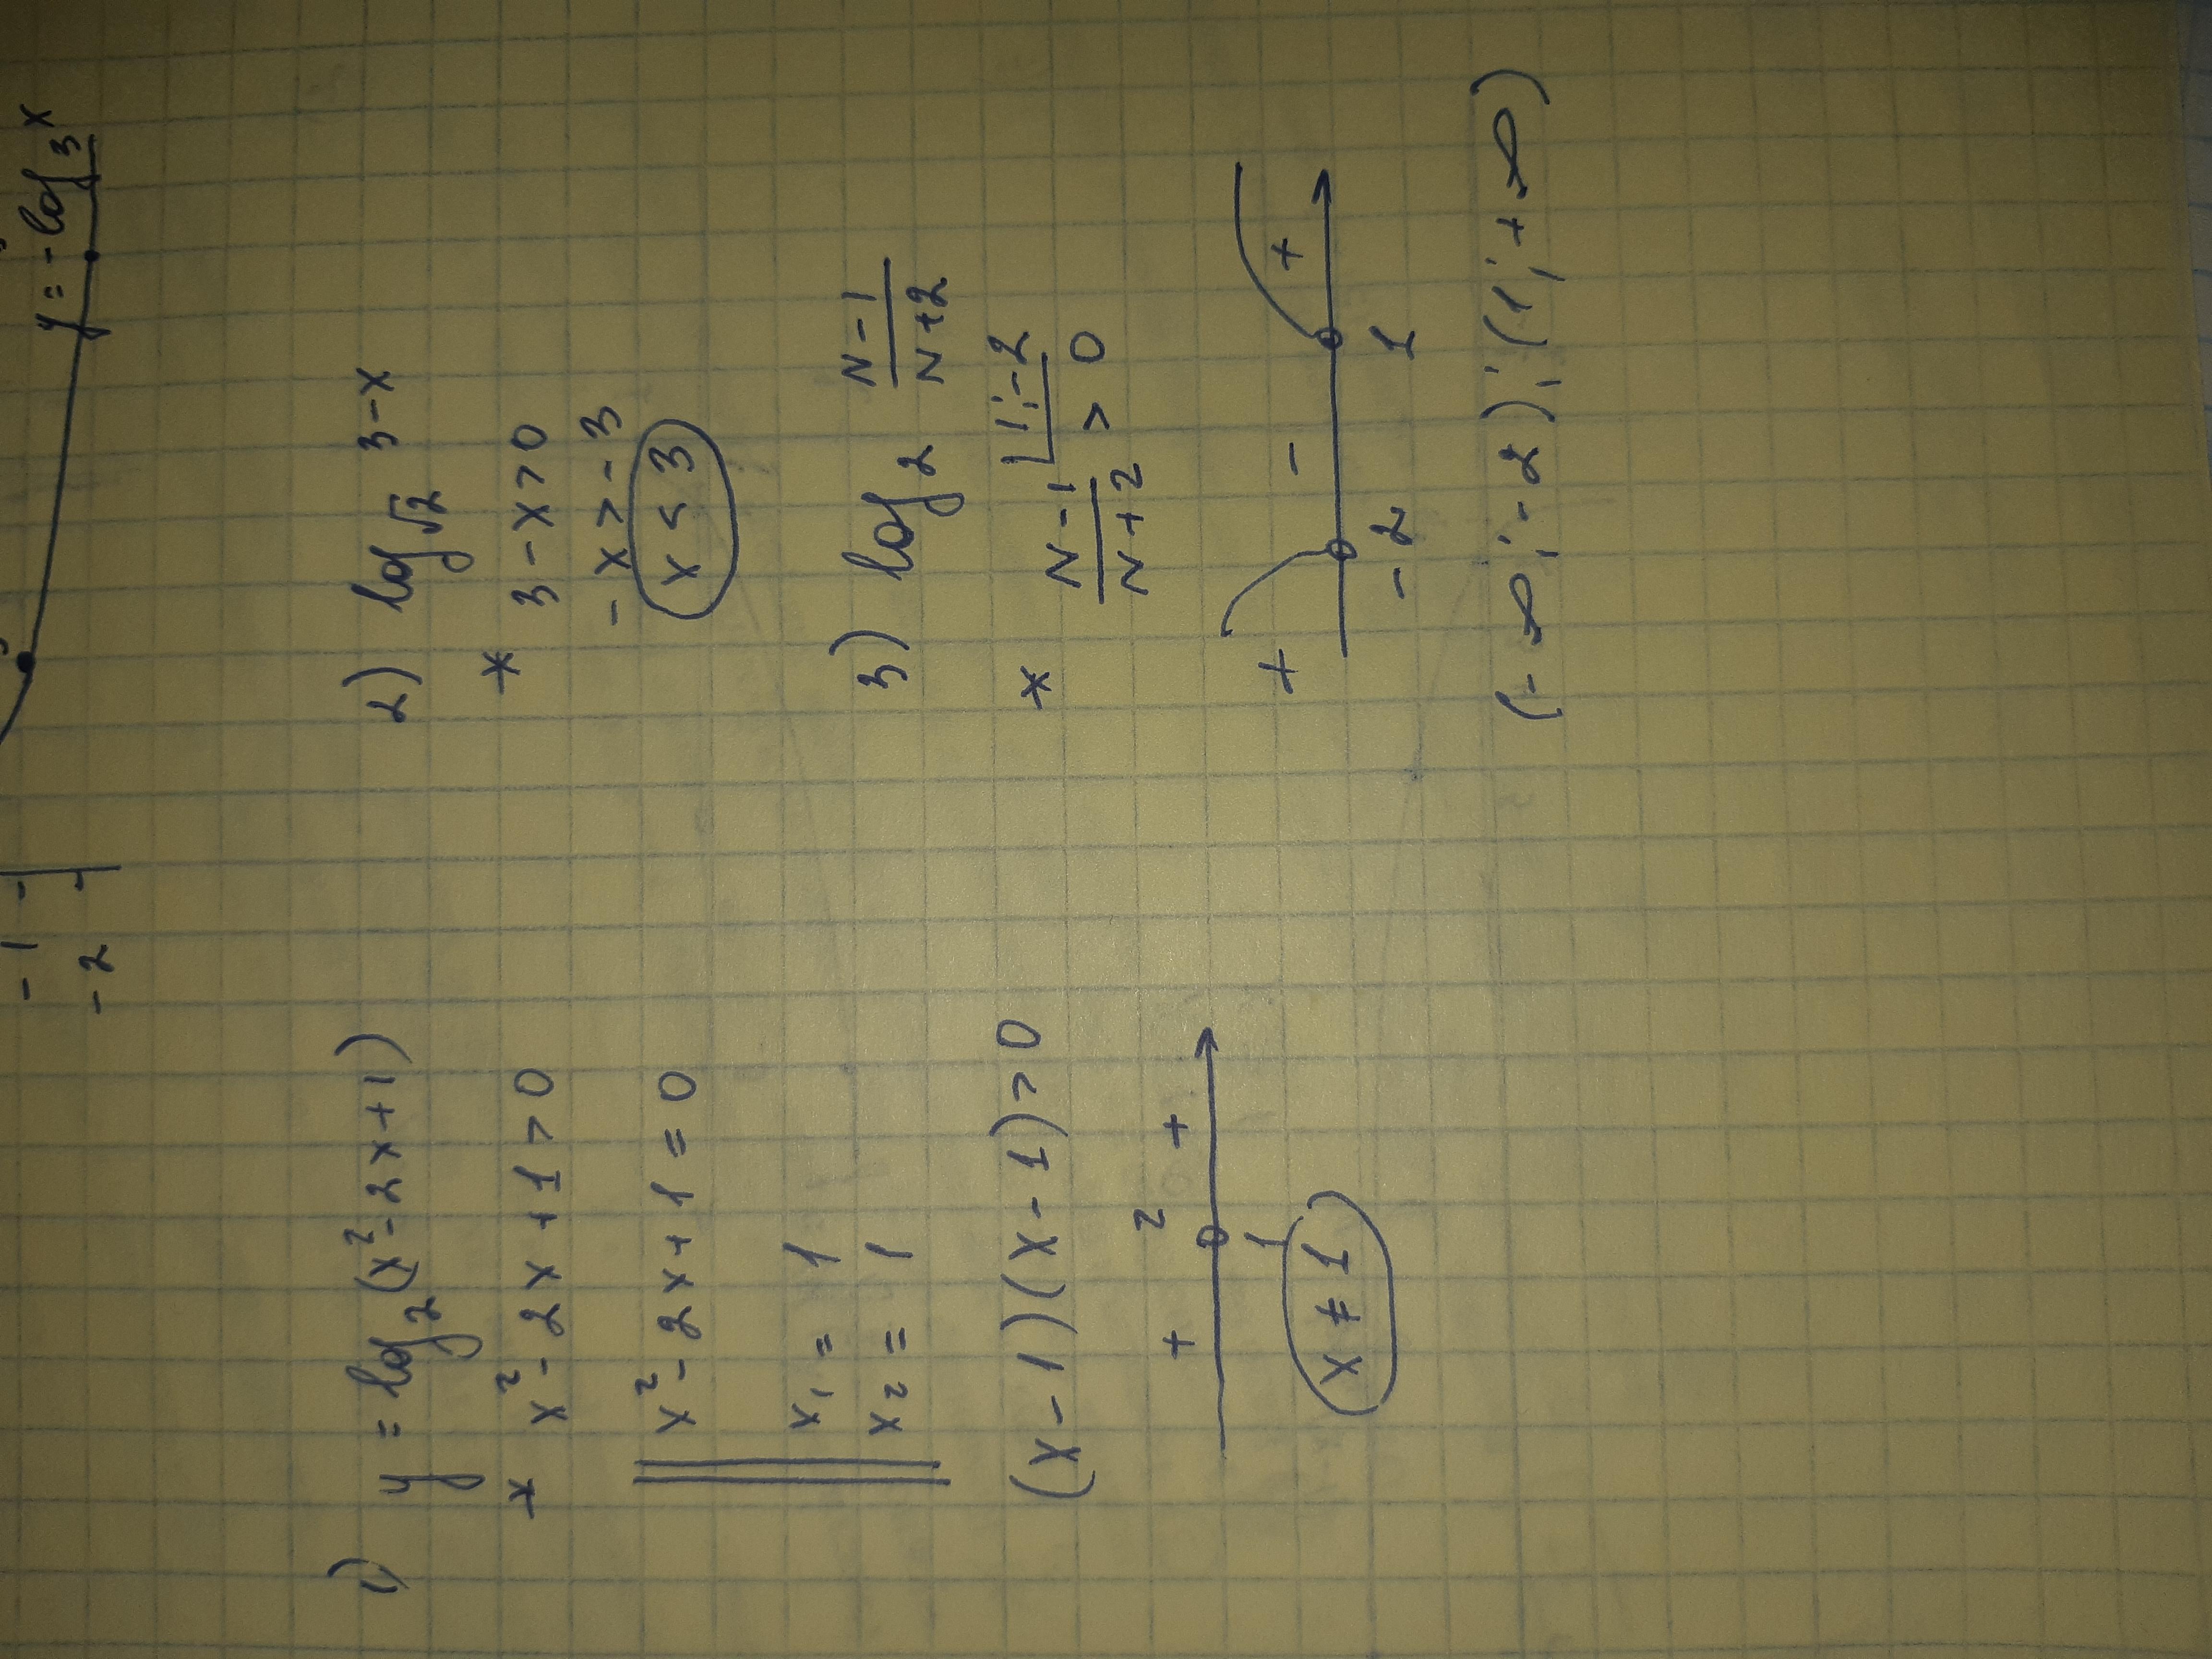 y = -log₃x
-1
-2
1) y = log₂(x²-2x+1)
* x²-2x+1>0
x²-2x+1=0
x₁ = 1
x₂ = 1
(x-1)(x-1)>0
+ 2 +
1
x ≠ 1
2) log√2 3-x
* 3-x>0
-x>-3
x<3
3) log₂ N-1/N+2
* N-1/N+2 > 0 1;-2
+ - +
-2 1
(-∞;-2);(1;+∞)